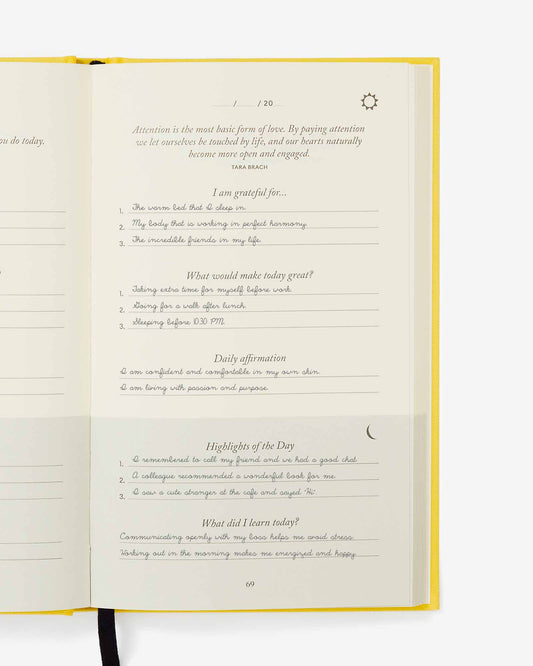 ou do today.
/ / 20
Attention is the most basic form of love. By paying attention
we let ourselves be touched by life, and our hearts naturally
become more open and engaged.
TARA BRACH
I am grateful for...
1. The warm bed that I sleep in.
2. My body that is working in perfect harmony.
3. The incredible friends in my life.
What would make today great?
1. Taking extra time for myself before work.
2. Going for a walk after lunch.
3. Sleeping before 10:30 PM.
Daily affirmation
I am confident and comfortable in my own skin.
I am living with passion and purpose.
Highlights of the Day
1. I remembered to call my friend and we had a good chat.
2. A colleague recommended a wonderful book for me.
3. I saw a cute stranger at the cafe and sayed "Hi".
What did I learn today?
Communicating openly with my boss helps me avoid stress.
Working out in the morning makes me energized and happy.
69